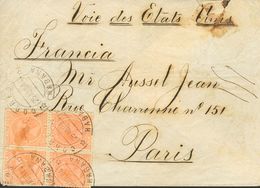 Voie des Etats Unis
Francia
Mr Aussel Jean
Rue Charronne nº 151
Paris
HABANA